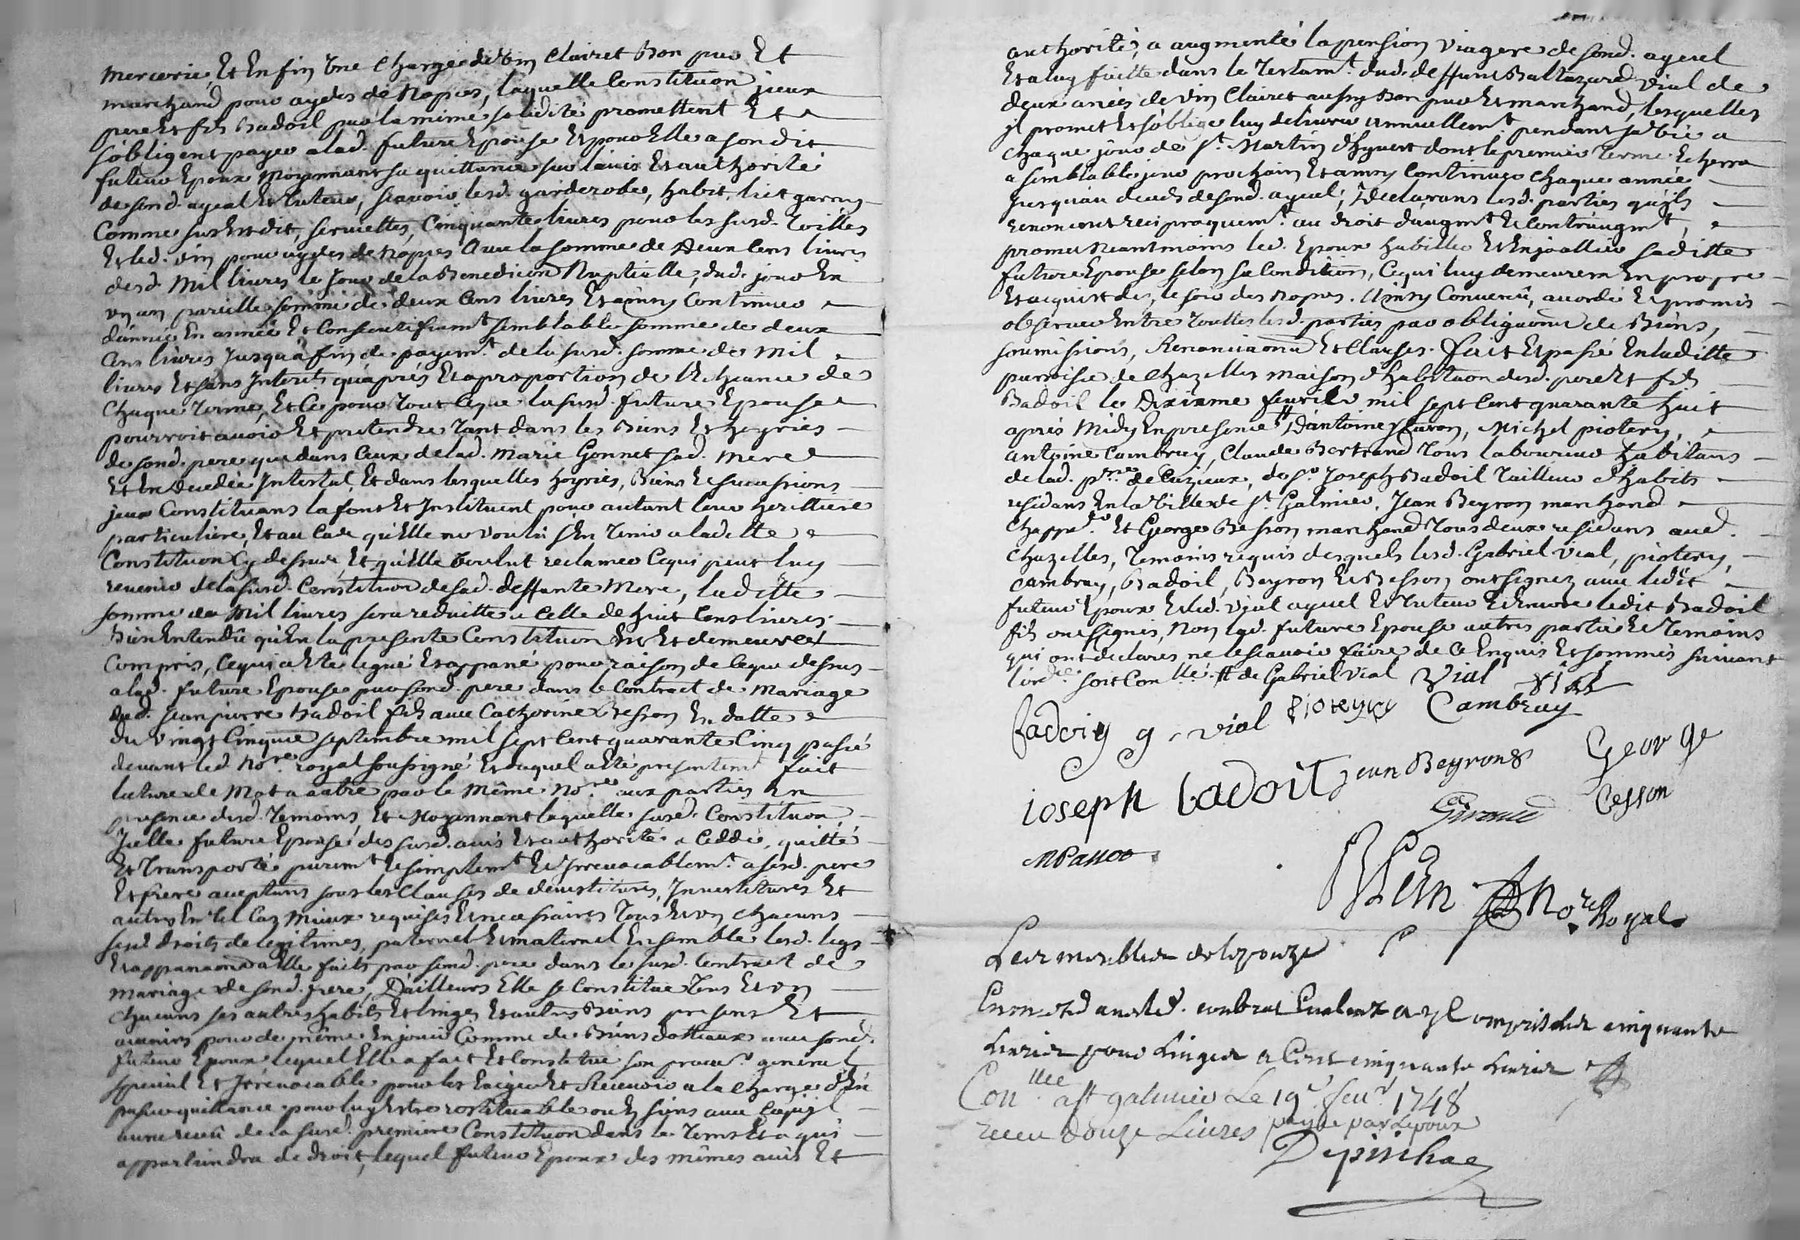 mercerie, Et Enfin Une Charge de Vin Clairet Bon pur Et
marchand pour aydes de Nopces, laquelle Constitution jceux
pere Et fils Badoil par la même solidité promettent Et
s'obligent payer a lad. future Epouse Et pour Elle a son dit
futeur Epoux moyennant sa quittance sur l'avis Et authorité
de sond. ayeul Et tuteur, scavoir lesd. garderobe, habit, lict garny
Comme sus Est dit, serviettes, Cinquante livres pour les susd. toilles
Et led. vin pour aydes de Nopces Avec la somme de deux Cens livres
desd. Mil livres le jour de la Benediction Nuptialle, dud. jour En
un an pareille somme de deux Cens livres Et ainsy Continuer
d'année En année Et Consecutifvemt. semblable somme de deux
Cens livres jusqu'à fin de payemt. de la susd. somme de Mil
livres Et sans Interets qu'aprés Et a proportion de l'Echeance de
Chaque terme, Et Ce pour tout Ce que la susd. future Epouse
pourroit avoir Et pretendre tant dans les Biens Et hoyries
de sond. pere que dans Ceux de lad. Marie Gonnet sad. Mere
Et En decedée Intestat Et dans lesquelles hoyries, Biens Et successions
jceux Constituans la font Et Instituent pour autant leur heritiere
particuliere, Et au Cas qu'Elle ne voulu s'En tenir a ladette
Constitution Cy dessus Et qu'Elle voulut reclamer Ce qui peut luy
revenir de la susd. Constitution de sad. deffunte Mere, laditte
somme de Mil livres sera reduitte a Celle de huit Cens livres
Bien Entendû qu'En la presente Constitution Est Et demeure
Compris, Ce qui a Eté legué Et appané pour raison de Ce que dessus
a lad. future Epouse par sond. pere dans le Contract de Mariage
dud. Jean pierre Badoil fils avec Catherine Besson En datte
du Vingt Cinquie septembre mil sept Cent quarante Cinq passé
devant led. Nore. royal soussigné Et duquel a Eté presentemt. fait
lecture de Mot a autre par le Même Nore. aux parties En
presence desd. temoins Et Moyennant laquelle susd. Constitution
jcelle future Epouse des susd. avis Et authorité a Ceddé, quitté
Et transporté puremt. Et simplemt. Et Irrevocablemt. a sesd. pere
Et frere acceptans sous les Clauses de devestitures, Investitures Et
autres En tel Cas Mieux requises Et necessaires tous Et un chacuns
sesd. droits de legitimes, paternel Et maternel Ensemble lesd. legs
Et appanaons. a Elle faits par sond. pere dans le susd. Contract de
Mariage de sond. frere, D'ailleurs Elle se Constitue tous Et un
chacuns ses autres habits Et linges Et autres Biens presens Et
avenirs pour de même En jouir Comme de Biens dotteaux avec sond.
futeur Epoux lequel Elle a fait Et Constitue son procur. general
special Et Irrevocable pour les Exiger Et Recevoir a la charge d'En
passer quittance pour luy Estre restituable ou Es siens avec Ce qu'il
aura receu de la susd. premiere Constitution dans le tems Et a qui
appartiendra de droit, lequel futeur Epoux des mêmes avis Et
authorité, a augmenté la pension Viagere de sond. ayeul
Et a luy faitte dans le Testamt. dud. deffunt Baltazard Vial de
deux anées de Vin Clairet aussy Bon pur Et marchand, lesquelles
jl promet Et s'oblige luy delivrer annuellemt. pendant sa Vie a
Chaque jour de st. Martin d'hyvert dont le premier terme Echerra
a semblable jour prochain Et ainsy Continuer Chaque année
jusqu'au decés de sond. ayeul, Declarans lesd. parties qu'ils
renoncent reciproquemt. au droit d'augmt. Et Contraugmt.,
promet Neantmoins led. Epoux habiller Et Enjoailler saditte
future Epouse selon sa Condition, Ce qui luy demeurera En propre
Et acquist dez le soir des Nopces. Ainsy Convenû, accordé Et promis
observer Entre touttes lesd. parties par obligaons. de Biens,
soumissions, Renonciaons. Et Clauses. fait Et passé En laditte
parroisse de Chazelles maison d'habitaon desd. pere Et fils
Badoil le Dixieme février mil sept Cent quarante huit
aprés Midy En presence # D'antoine furon, Michel piotery,
Antoine Cambray, Claude Bertrand tous laboureur habitans
de lad. psse. de Cuzieux, de sr. Joseph Badoil Tailleur d'habits
residans En la Ville de st. Galmier, Jean Beyron marchand
Chappr. Et George Besson marchand tous deux residans aud.
Chazelles, temoins requis desquels lesd. Gabriel Vial, pioterey,
Cambray, Badoil, Beyron Et Besson ont signez avec ledit
futeur Epoux Et led. Vial ayeul Et tuteur Et Encore ledit Badoil
fils one signés, Non lad. future Epouse autres parties Et temoins
qui ont declarés ne le scavoir faire de Ce Enquis Et sommés suivant
l'ordce. soit Conllé. # de Gabriel Vial Vial vial
badoig g. vial piotery Cambray
ioseph badoit jean Beyrons George
besson
Giraud
nore Royal
Les meubles de lepouze
Enoncez audt. contrat Evaluez a y Compris les cinquante
livres pour linges a Cent cinquante livres
Conllé. a st galmier Le 19e. fevr. 1748
receu douze Livres payée par Lepoux
Depinhac